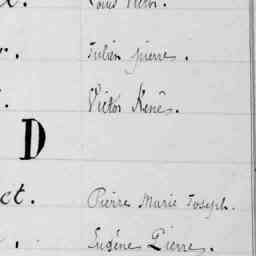 Louis Victor.
r. Julien pierre.
. Victor René.
D
et. Pierre Marie Joseph.
. Eugène Pierre.